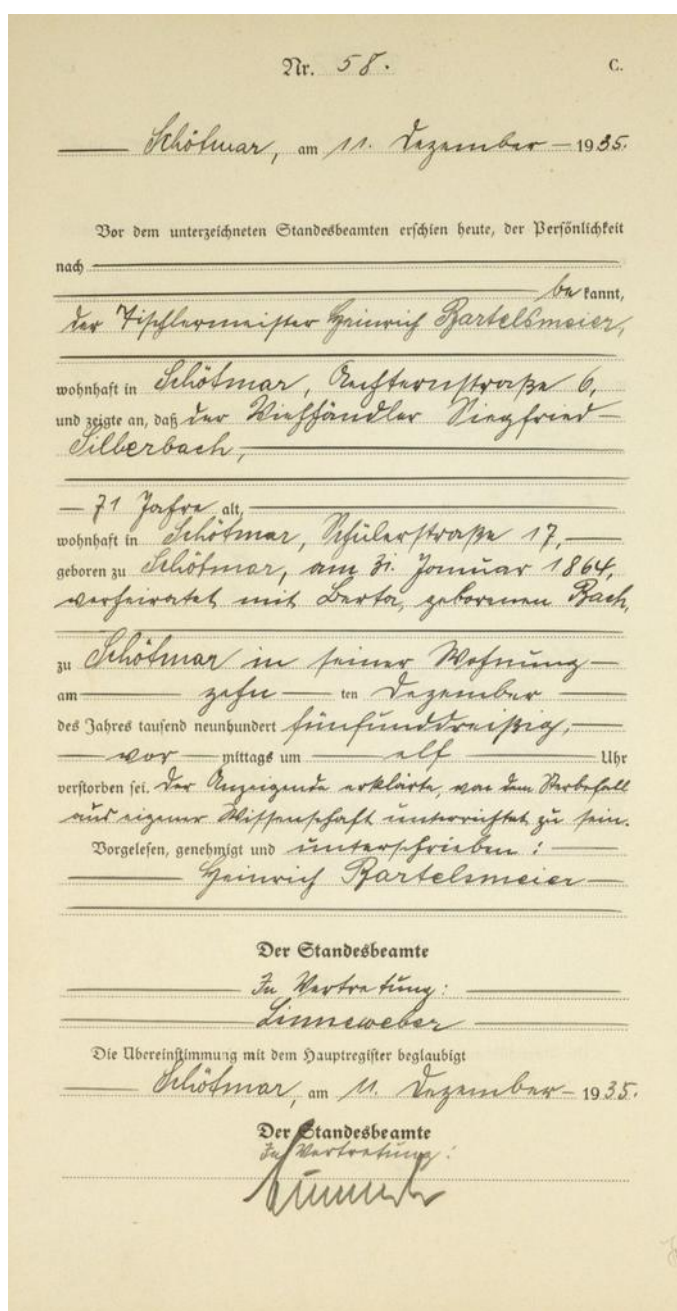 Nr. 58. C.
Schötmar, am 11. Dezember 1935.
Vor dem unterzeichneten Standesbeamten erschien heute, der Persönlichkeit
nach
bekannt,
der Tischlermeister Heinrich Bartelsmeier,
wohnhaft in Schötmar, Aechternstraße 6,
und zeigte an, daß der Viehhändler Siegfried
Silberbach,
71 Jahre alt,
wohnhaft in Schötmar, Schülerstraße 17,
geboren zu Schötmar, am 31. Januar 1864,
verheiratet mit Berta, geborenen Bach,
zu Schötmar in seiner Wohnung
am zehn ten Dezember
des Jahres tausend neunhundert fünfunddreißig,
vor mittags um elf Uhr
verstorben sei. Der Anzeigende erklärte, von dem Sterbefall
aus eigener Wissenschaft unterrichtet zu sein.
Vorgelesen, genehmigt und unterschrieben:
Heinrich Bartelsmeier
Der Standesbeamte
In Vertretung:
Linneweber
Die Übereinstimmung mit dem Hauptregister beglaubigt
Schötmar, am 11. Dezember 1935.
Der Standesbeamte
In Vertretung: